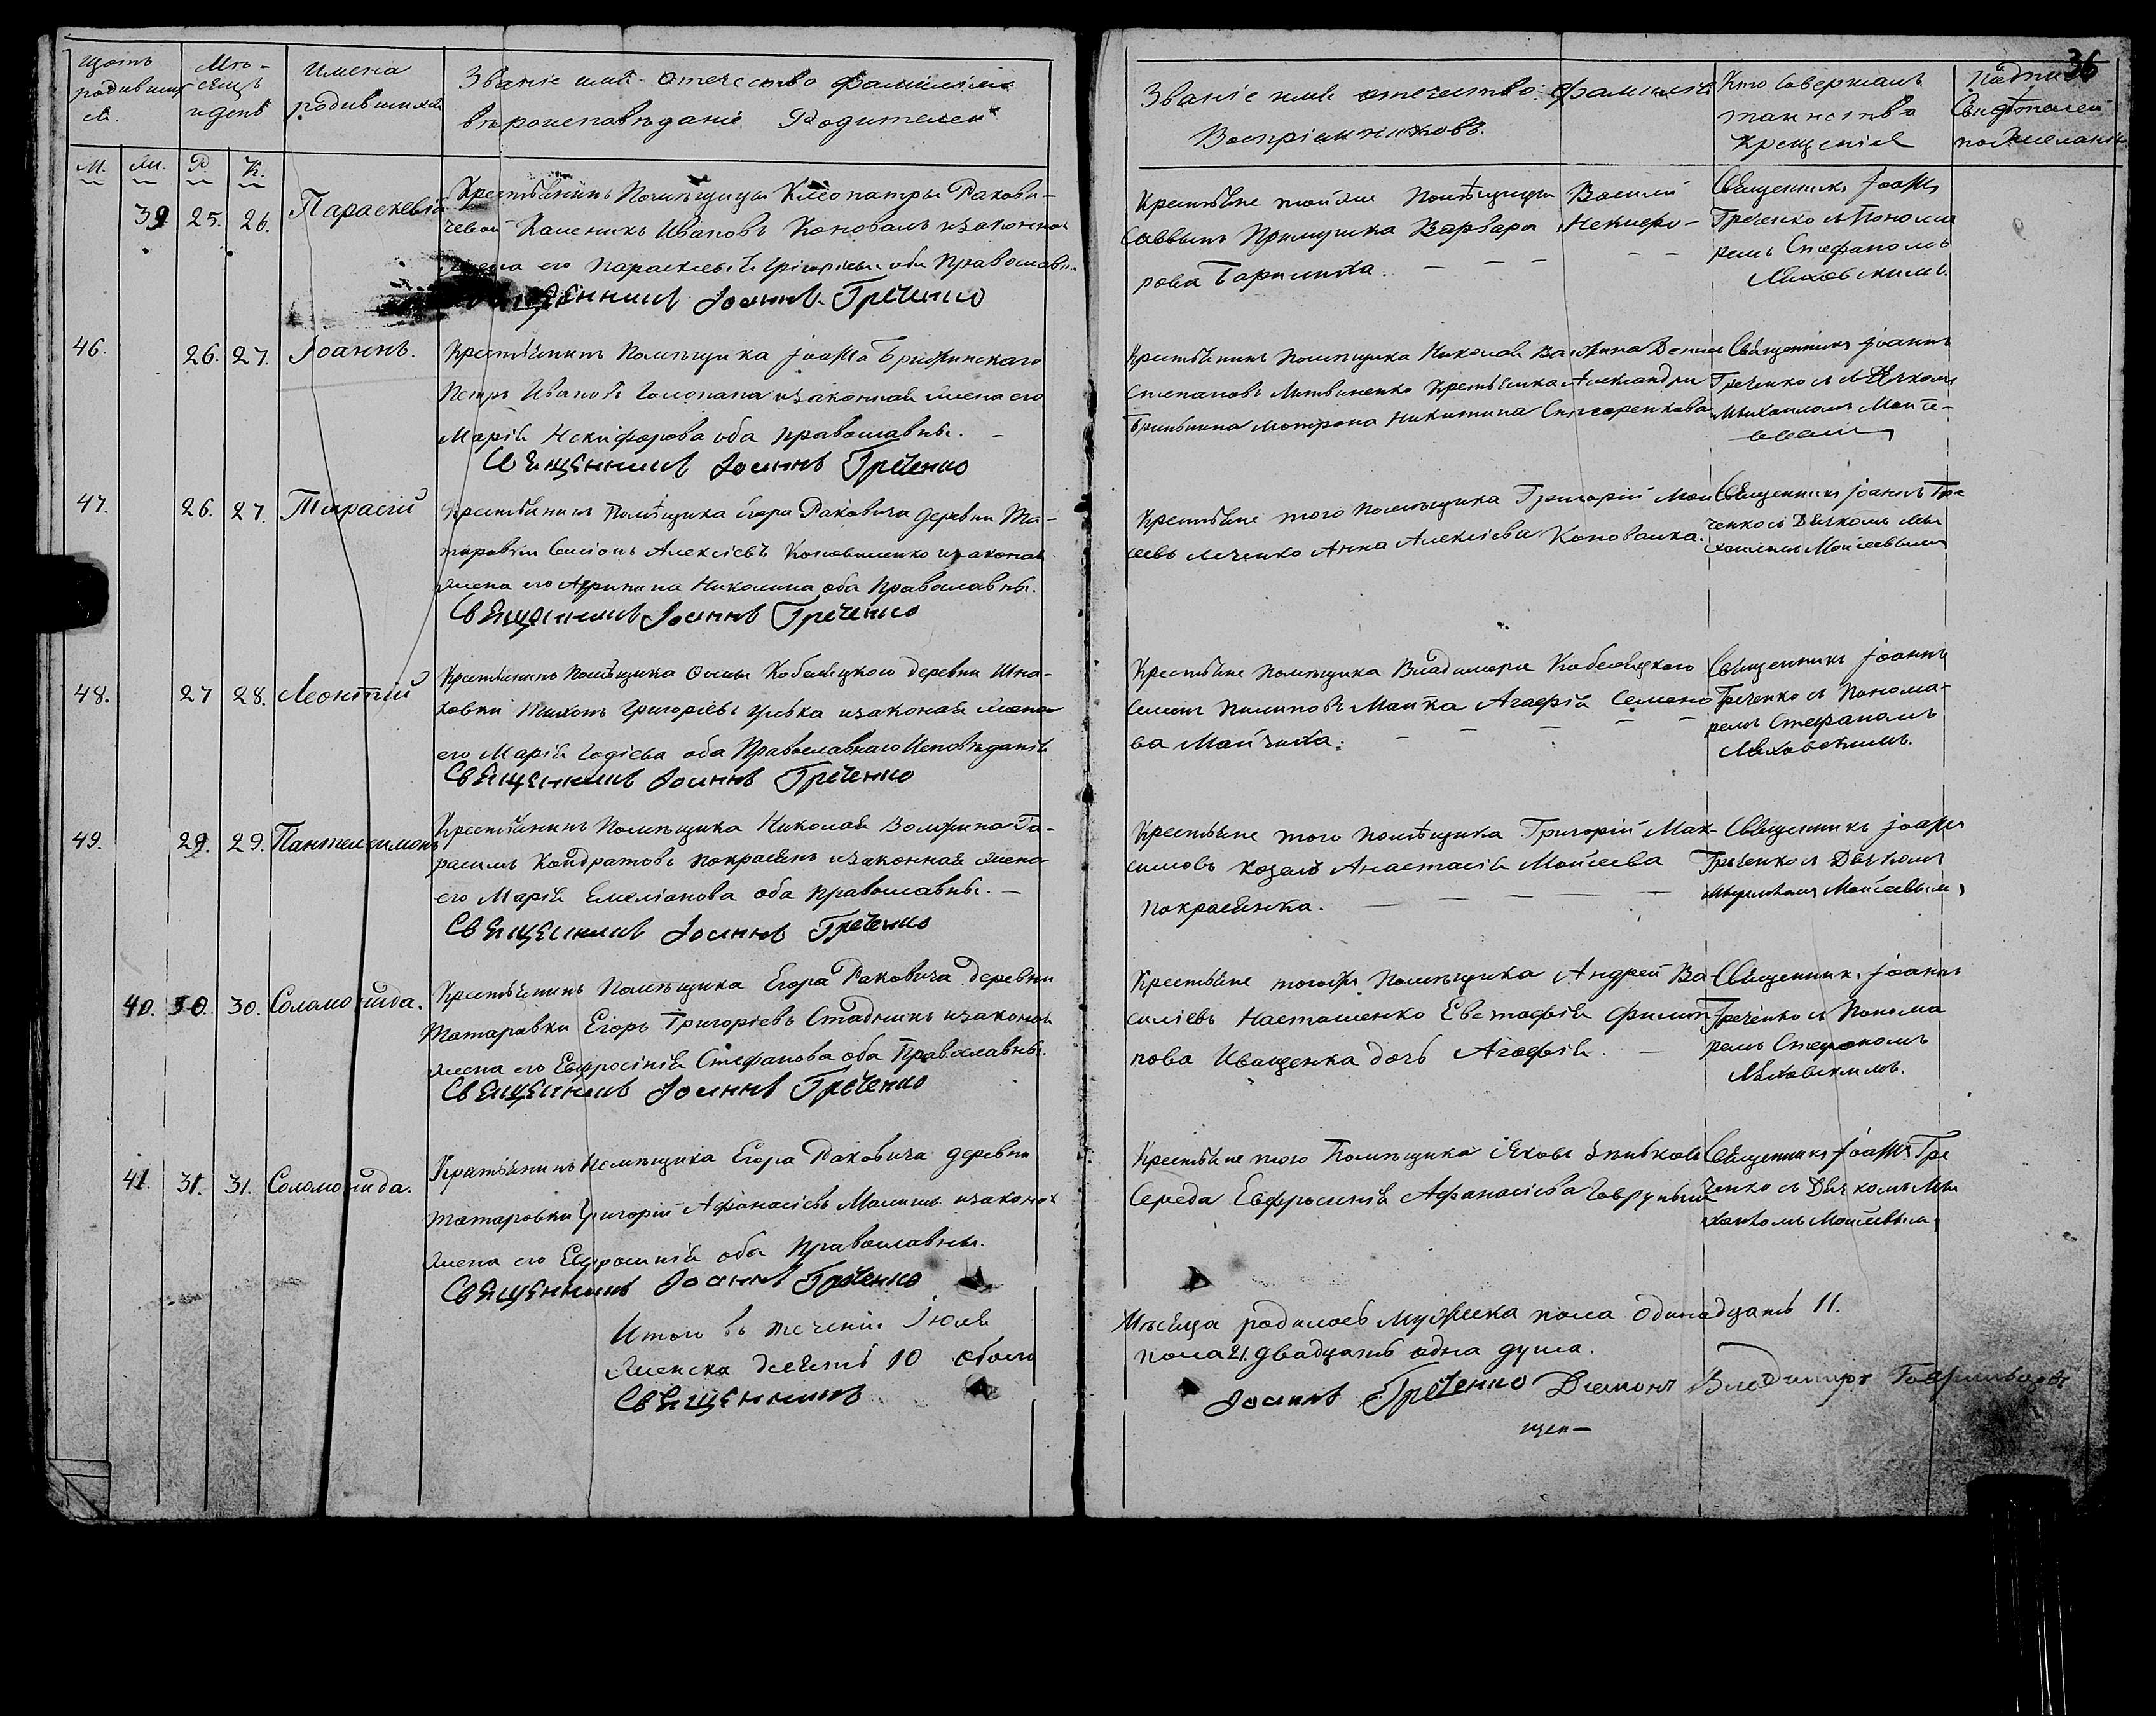 36
Щотъ родившихся.
Мѣсяцъ и день
Имена родившихся
Званіе имя отечество фамилія и
вѣроисповѣданіе Родителей
Званіе имя отечество фамилія
Воспріемниковъ.
Кто совершалъ
таинство
крещенія
Свидѣтелей
по желанію
М.
Р.
К.
39 25. 26. Параскевія
Крестьянинъ Помѣщицы Клеопатры Ракови-
чевой Каленикъ Ивановъ Коновалъ изаконная
жена его Параскевія Григоріева оба Православн.
Іоаннъ Греченко
Крестьяне тойже Помѣщицы Василій
Саввинъ Примушка Варвара Некифо-
рова
Священникъ Іоаннъ
Греченко съ Понома
ремъ Стефаномъ
Ляховскимъ.
46. 26. 27. Іоаннъ.
Крестьянинъ Помѣщика Іоанна
Петръ Ивановъ Голопапа изаконная жена его
Марія Некифорова оба православны.
Священникъ Іоаннъ Греченко
Крестьянинъ помѣщика Николая Волжина
Степановъ Литвиненко Крестьянка Александры
Мотрона Никитина
Священникъ Іоаннъ
Греченко съ Дячкомъ
Михаиломъ Моисе-
евымъ
47. 26. 27. Тарасій
Крестьянинъ Помѣщика Егора Раковича деревни Та-
таровки Симіонъ Алексіевъ Коноваленко изаконая
жена его Агрипина Николина оба Православны.
Священникъ Іоаннъ Греченко
Крестьяне того помѣщика Григорій Мои
сеевъ Анна Алексіева Коновалка.
Священникъ Іоаннъ Гре
ченко съ Дячкомъ Ми
хаиломъ Моисеевымъ
48. 27 28. Леонтій
Крестьянинъ Помѣщика Осипа Кобелецкого деревни Игна-
товки Тихонъ Григоріевъ изаконая жена
его Марія оба Православнаго Исповѣданія
Священникъ Іоаннъ Греченко
Крестьяне помѣщика Владимера Кобелецкого
Семенъ Пилиповъ Агафія Семено
ва
Священникъ Іоаннъ
Греченко съ Понома-
ремъ Стефаномъ
Ляховскимъ.
49. 29. 29. Пантелеимонъ
Крестьянинъ Помѣщика Николая Волжина Га-
расимъ Кондратовъ Покрасѣнъ изаконная жена
его Марія Емеліанова оба православны.
Священникъ Іоаннъ Греченко
Крестьяне того помѣщика Григорій Мак-
симовъ Козелъ Анастасія Моисеева
Покрасѣнка.
Священникъ Іоаннъ
Греченко съ Дячкомъ
Моисеевымъ
40. 30. 30. Соломонида.
Крестьянинъ Помѣщика Егора Раковича деревни
Татаровки Егоръ Григоріевъ Стадникъ изаконая
жена его Евфросинія Стефанова оба Православны.
Священникъ Іоаннъ Греченко
Крестьяне тогожъ Помѣщика Андрей Ва
силіевъ Насташенко Евстафія Филип
пова Иващенка дочь Агафія.
Священникъ Іоаннъ
Греченко съ Понома
ремъ Стефаномъ
Ляховскимъ.
41. 31. 31. Соломонида.
Крестьянинъ Помѣщика Егора Раковича деревни
Татаровки Григорій Афанасіевъ изаконая
жена его Ефросинія оба Православны.
Священникъ Іоаннъ Греченко
Крестьяне того Помѣщика Яковъ
Середа Евфросинія Афанасіева
Священникъ Іоаннъ Гре
ченко съ Дячкомъ Ми
хаиломъ Моисеевымъ
Итого въ теченіи Іюля
женска десять 10 обоего
Священникъ
Мѣсяца родилось мужеска пола одинадцать 11.
пола 21. двадцать одна душа.
Іоаннъ Греченко Диаконъ Владимиръ